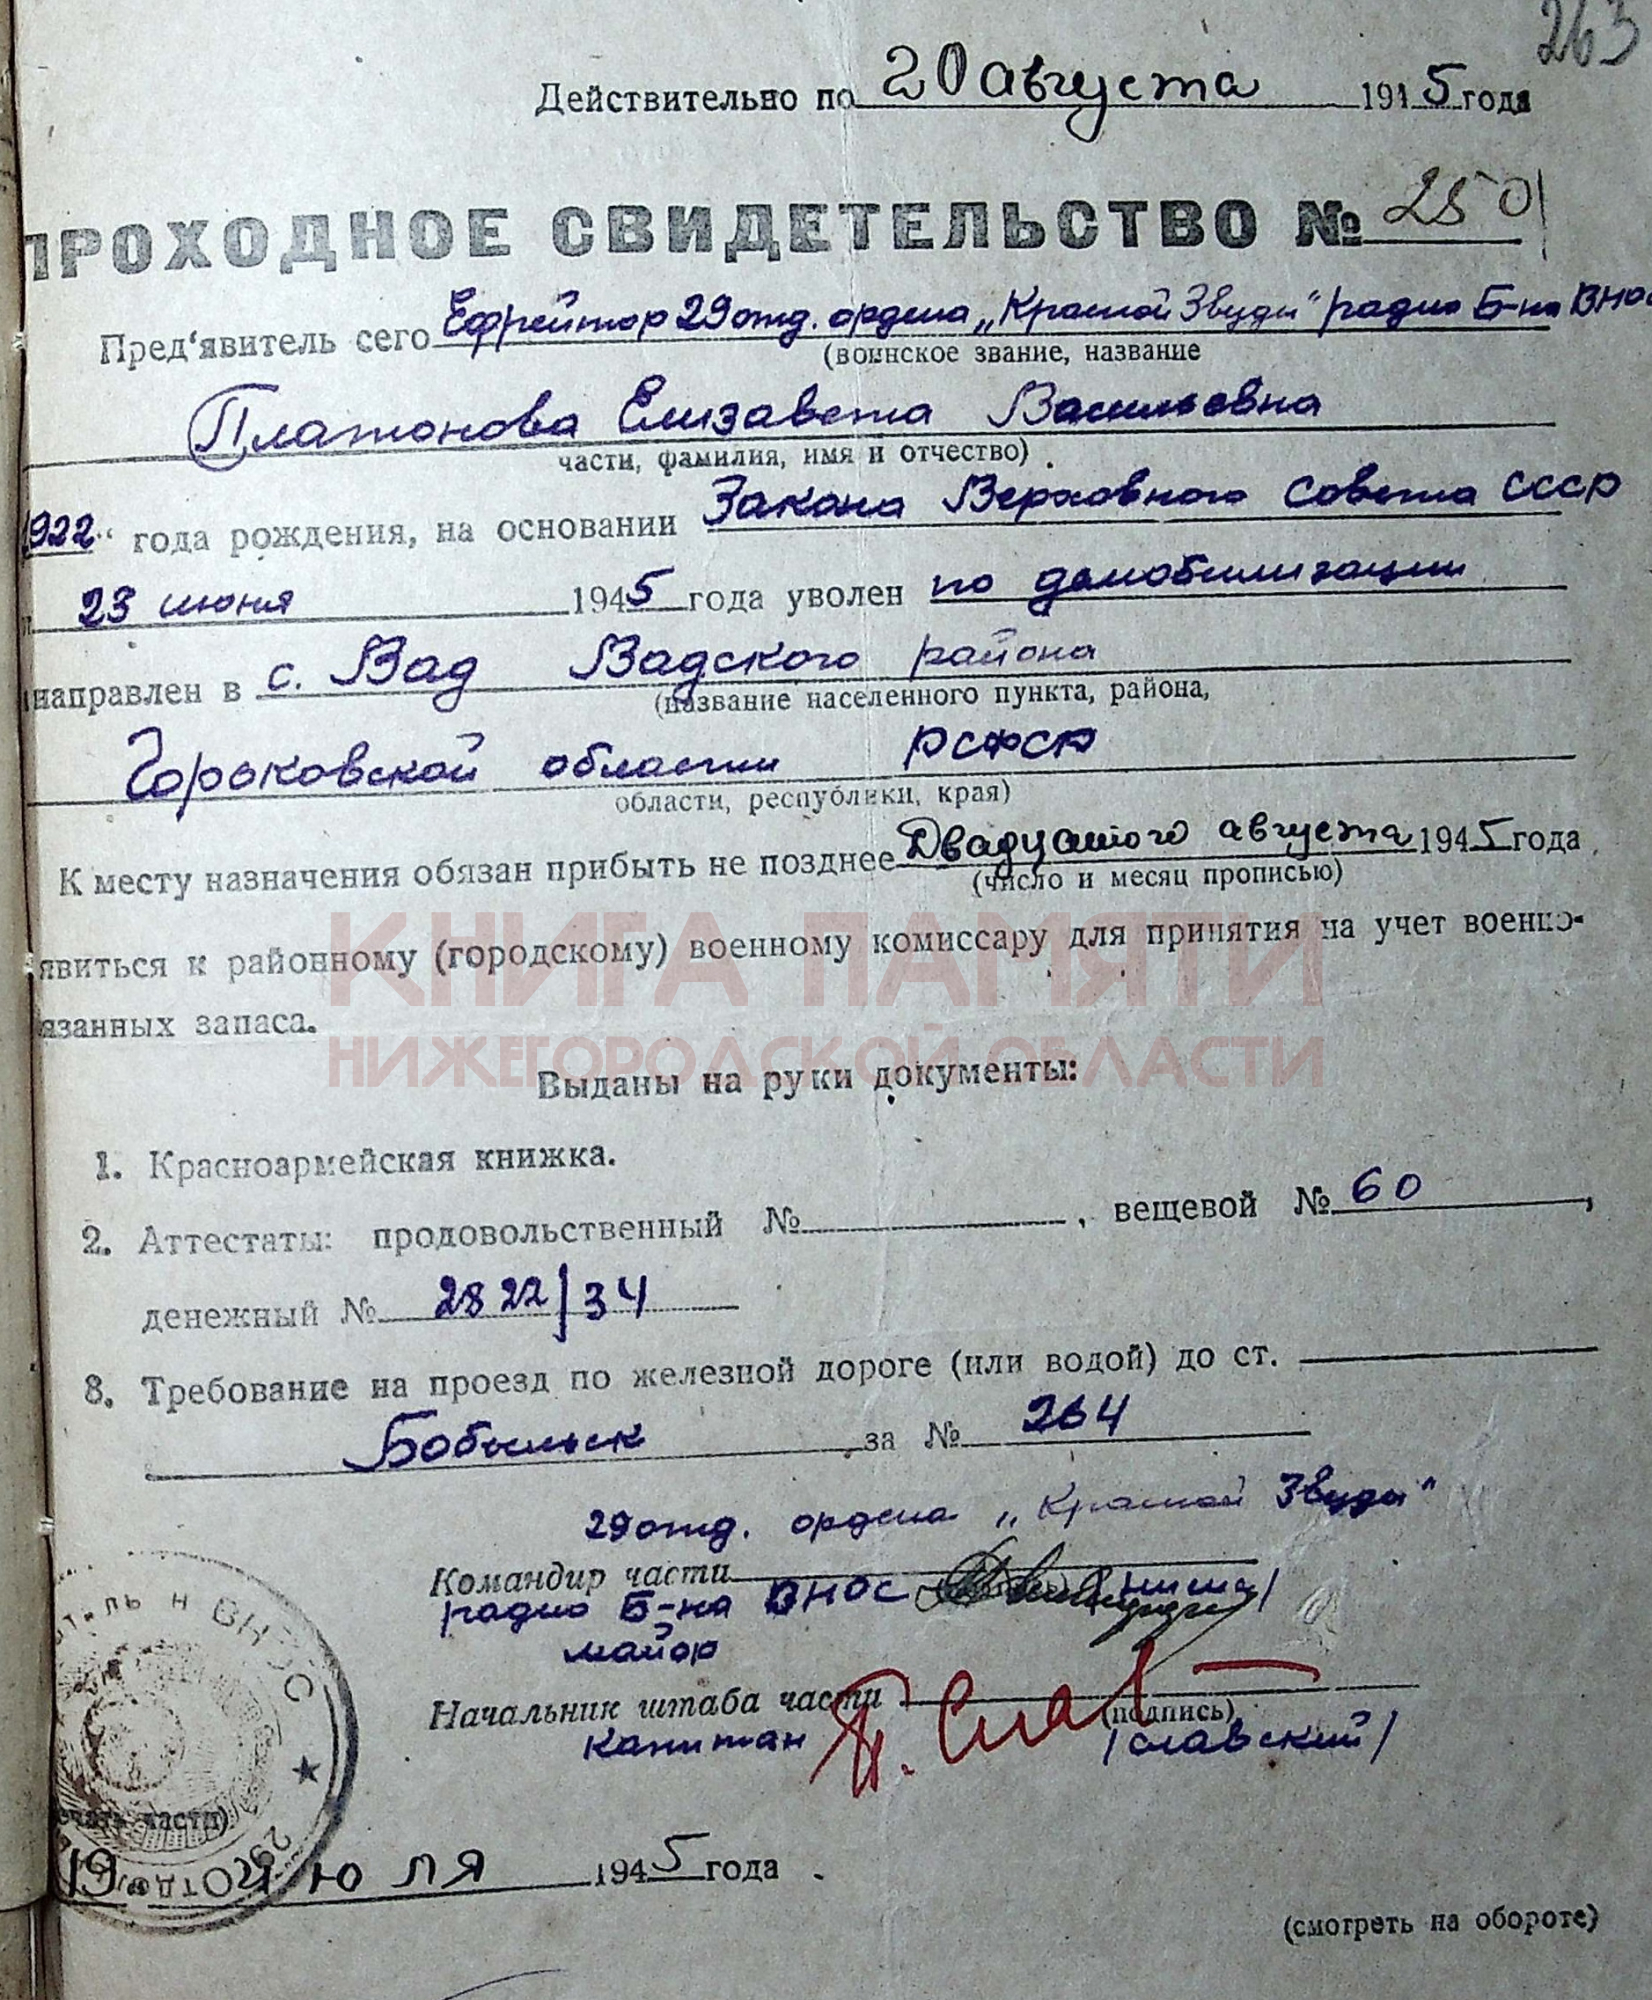 263
Действительно по 20 августа 1945 года
ПРОХОДНОЕ СВИДЕТЕЛЬСТВО № 250
Пред'явитель сего Ефрейтор 29 отд. ордена „Красной Звезды" радио Б-на ВНОС
(воинское звание, название
Платонова Елизавета Васильевна
части, фамилия, имя и отчество)
1922 " года рождения, на основании Закона Верховного Совета СССР
23 июня 1945 года уволен по демобилизации
направлен в с. Вад Вадского района
(название населенного пункта, района,
Горьковской области РСФСР
области, республики, края)
К месту назначения обязан прибыть не позднее Двадцатого августа 1945 года
(число и месяц прописью)
явиться к районному (городскому) военному комиссару для принятия на учет военно-
язанных запаса.
КНИГА ПАМЯТИ
НИЖЕГОРОДСКОЙ ОБЛАСТИ
Выданы на руки документы:
1. Красноармейская книжка.
2. Аттестаты: продовольственный № , вещевой № 60 ,
денежный № 2822/34
3. Требование на проезд по железной дороге (или водой) до ст.
Бобыльск за № 264
29 отд. ордена „Красной Звезды"
Командир части
радио Б-на ВНОС
майор
Начальник штаба части
(подпись)
капитан П. Слав /Славский/
ВНОС
29 ОТД
чать части)
19 июля 1945 года
(смотреть на обороте)